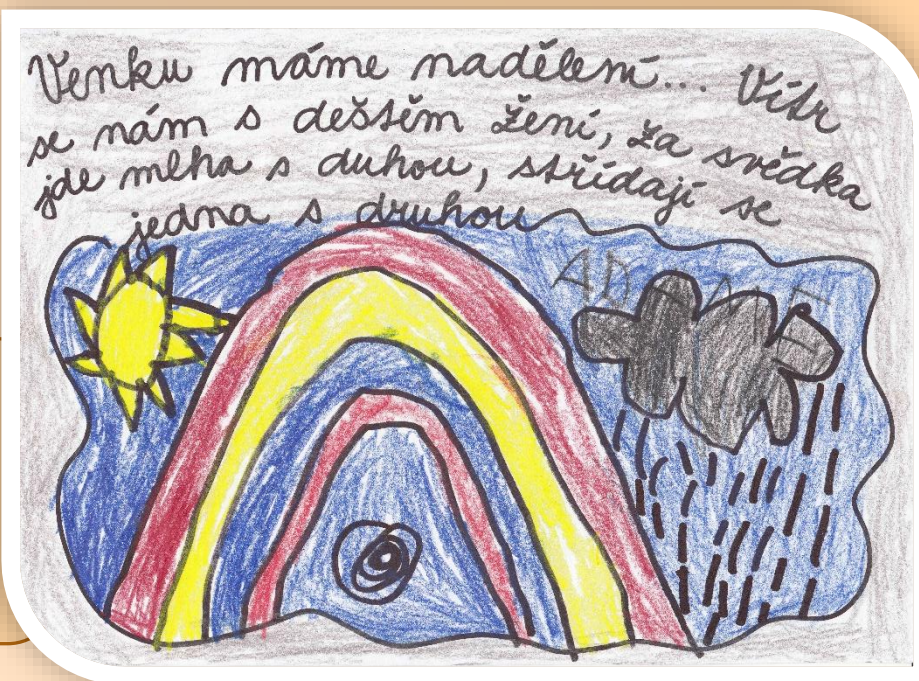 Venku máme nadělení... Vítr
se nám s deštěm žení, za svědka
jde mlha s duhou, střídají se
jedna s druhou